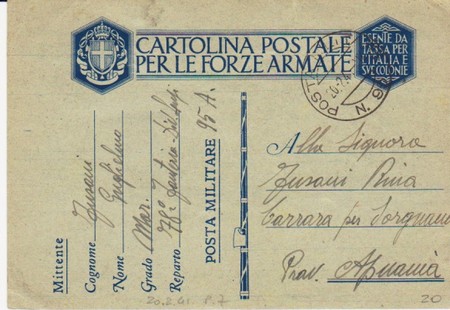 CARTOLINA POSTALE
PER LE FORZE ARMATE
ESENTE DA
TASSA PER
L'ITALIA E
SUE COLONIE
POSTA N
Mittente
Cognome Fusani
Nome Guglielmo
Grado Mar.
Reparto 78º Fanteria
POSTA MILITARE 95 A.
Alla Signora
Fusani Rina
Carrara per Sorgnano
Prov. Apuania
20.2.41 P.7
20